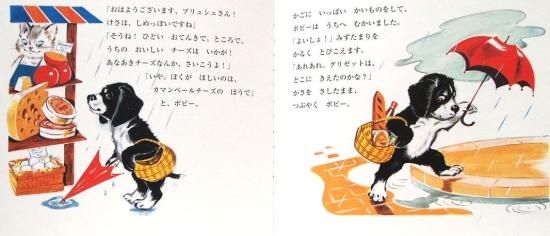 「おはようございます、ブリュシュさん!
けさは、しめっぽいですね」
「そうね! ひどい おてんきで。ところで、
うちの おいしい チーズは いかが!
あなあきチーズなんか、さいこうよ!」
「いや。ぼくが ほしいのは、
カマンベールチーズの ほうで」
と、ボビー。
かごに いっぱい かいものをして、
ボビーは うちへ むかいました。
「よいしょ!」みずたまりを
かるく とびこえます。
「あれあれ、グリゼットは、
どこに きえたのかな?」
かさを さしたまま、
つぶやく ボビー。